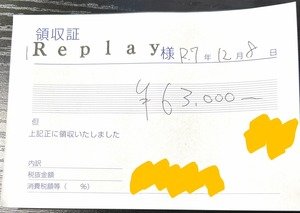 領収証
Replay様 R.7年12月8日
¥63.000-
但
上記正に領収いたしました
内訳
税抜金額
消費税額等( %)